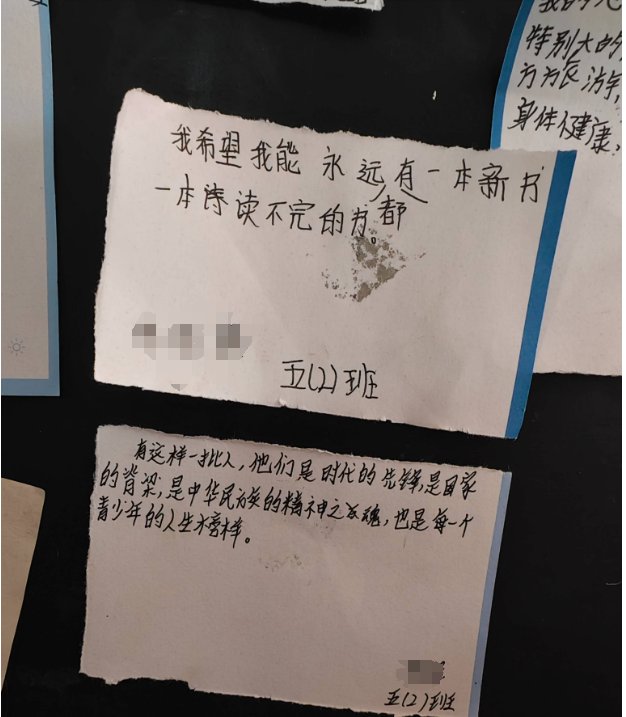 我的
特别大的
身体不健康，
我希望我能永远有一本新书
一本读不完的书。都
五(2)班
有这样一批人，他们是时代的先锋，是国家
的脊梁，是中华民族的精神之魂，也是每一个
青少年的人生榜样。
五(2)班